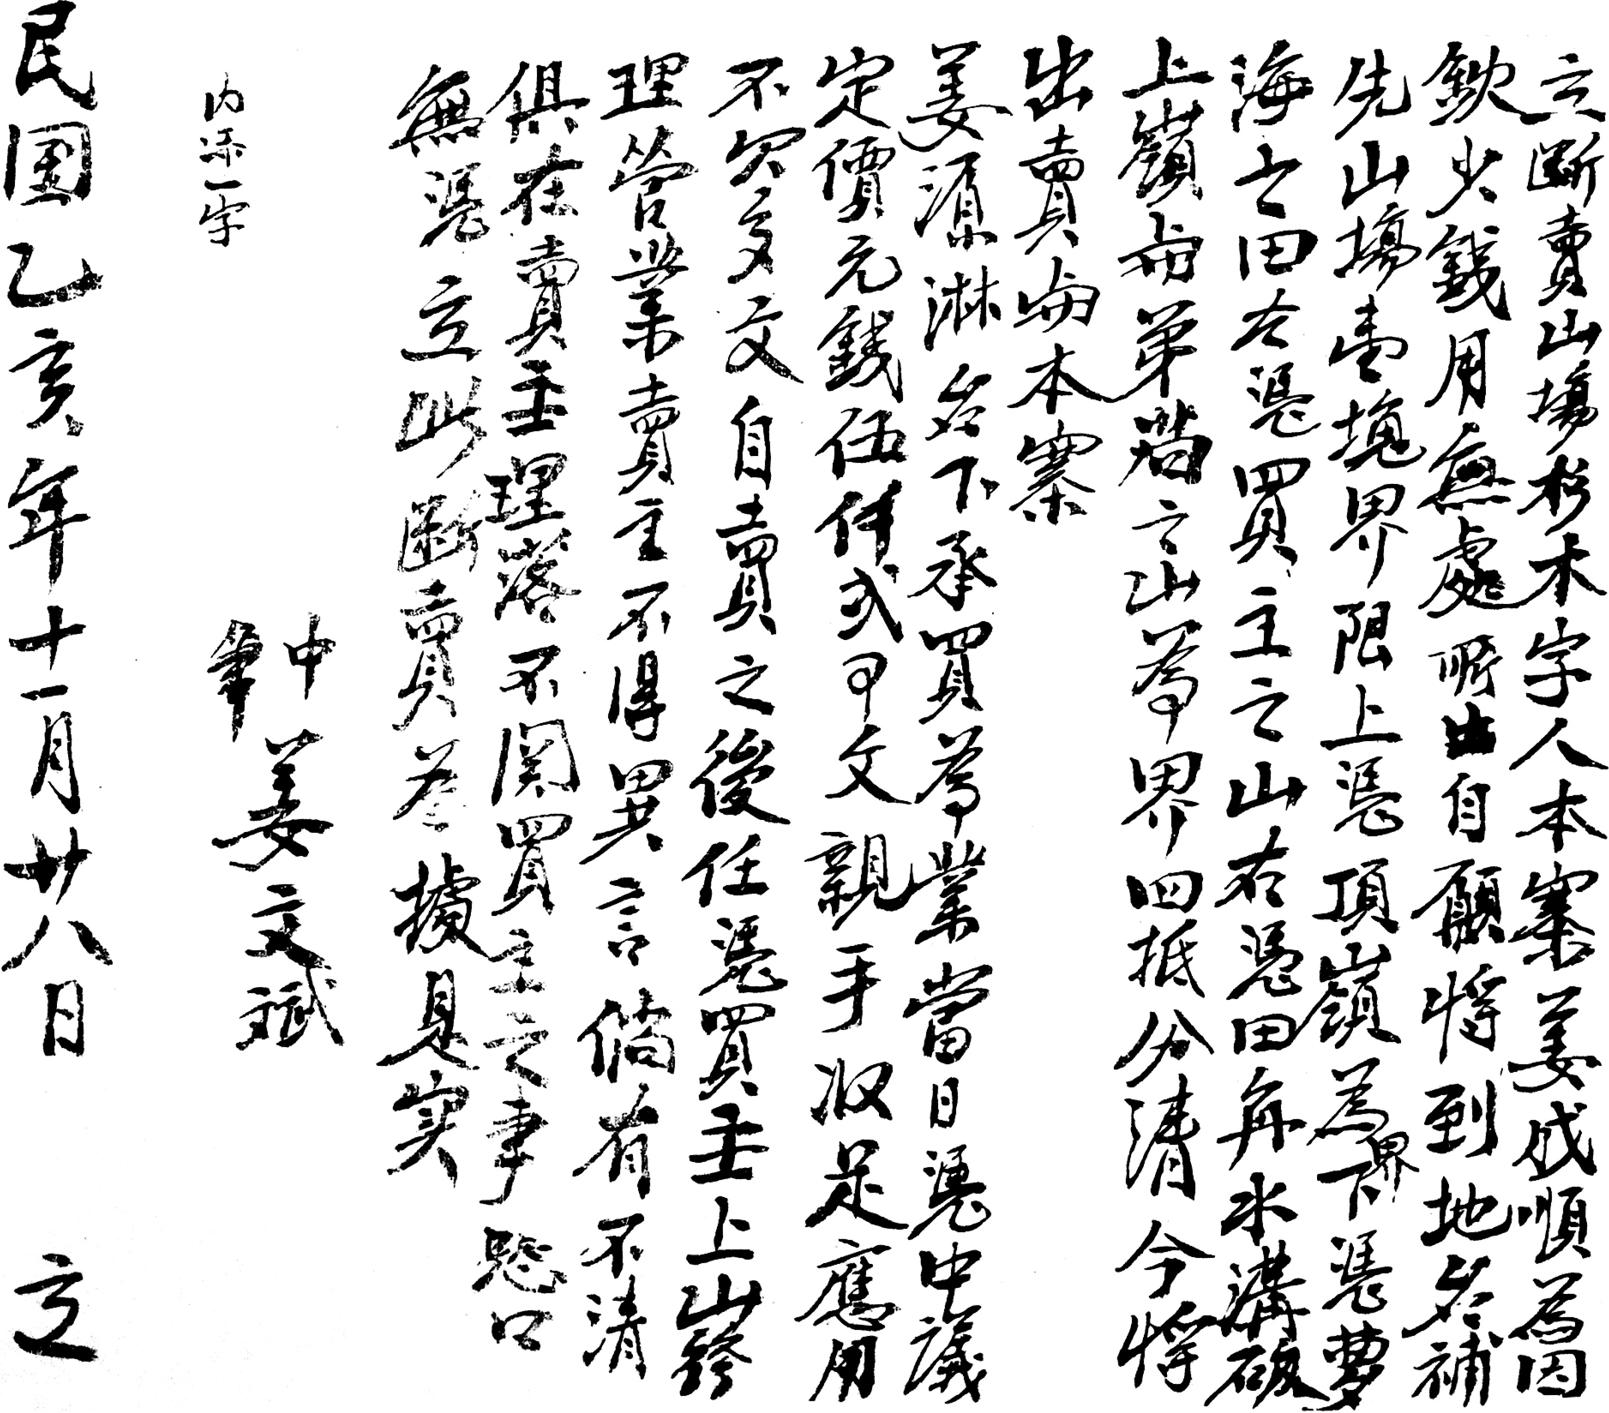 立断賣山塲杉木字人本寨姜成順為因
缺少錢用無處所出自願將到地名補
先山塲壹塊界限上憑頂嶺為界下憑夢
海之田左憑買主之山右憑田角水溝破
上嶺與弟 之山為界四抵分清今將
出賣與本寨
姜源淋名下承買為業當日憑中議
定價元錢伍仟弍 文親手收足應用
不欠分文自賣之後任憑買主上山修
理管業賣主不得異言倘有不清
俱在賣主理落不関買主之事恐口
無憑立此断賣為據是实
内添一字
中
筆 姜文斌
民国乙亥年十一月廿八日 立